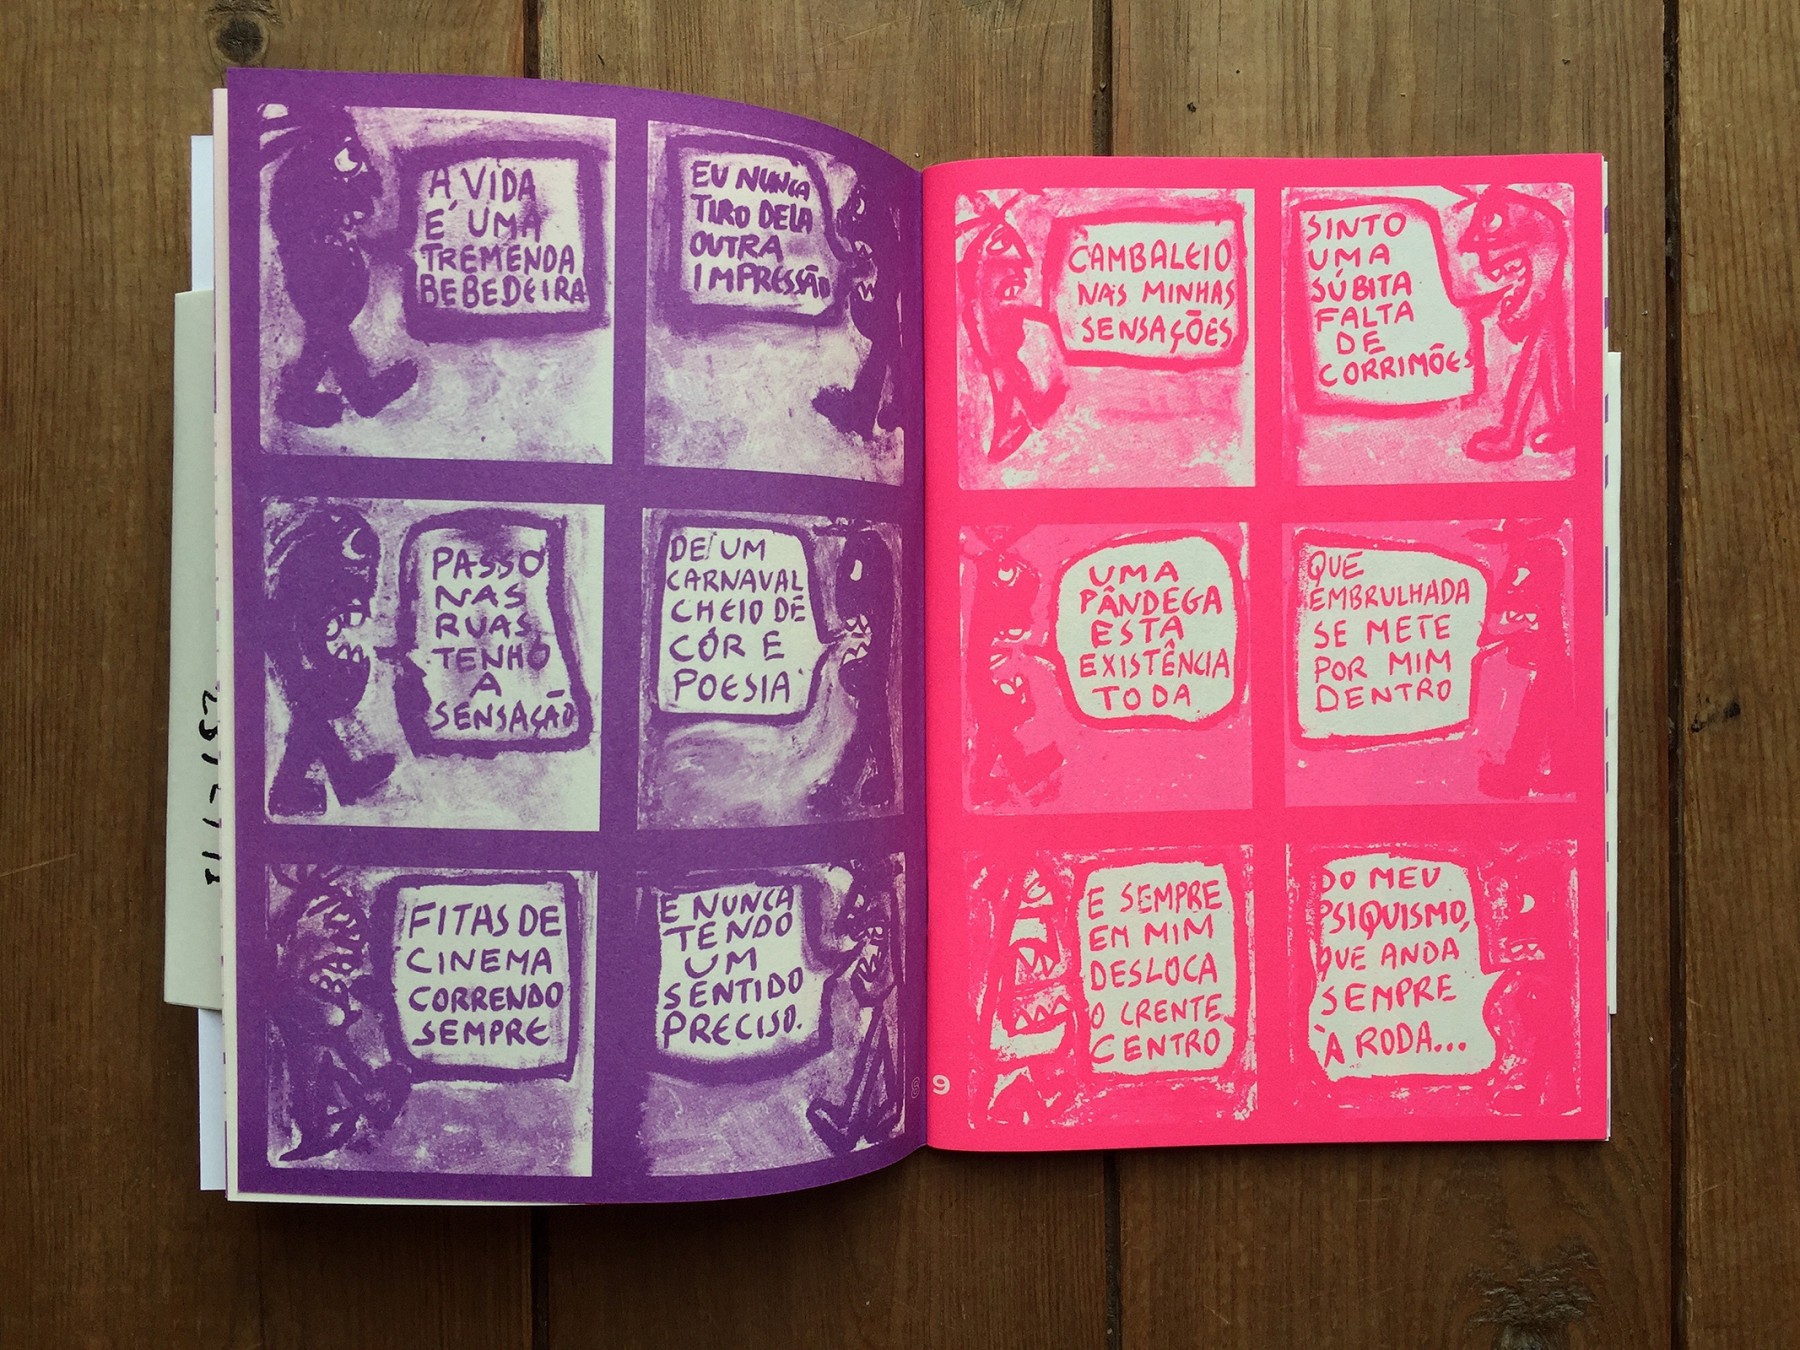 A VIDA
É UMA
TREMENDA
BEBEDEIRA
EU NUNCA
TIRO DELA
OUTRA
IMPRESSÃO
PASSO
NAS
RUAS
TENHO
A
SENSAÇÃO
DE UM
CARNAVAL
CHEIO DE
CÓR E
POESIA
FITAS DE
CINEMA
CORRENDO
SEMPRE
E NUNCA
TENDO
UM
SENTIDO
PRECISO.
8
CAMBALEIO
NAS MINHAS
SENSAÇÕES
SINTO
UMA
SÚBITA
FALTA
DE
CORRIMÕES
UMA
PÂNDEGA
ESTA
EXISTÊNCIA
TODA
QUE
EMBRULHADA
SE METE
POR MIM
DENTRO
E SEMPRE
EM MIM
DESLOCA
O CRENTE
CENTRO
DO MEU
PSIQUISMO,
QUE ANDA
SEMPRE
À RODA...
9